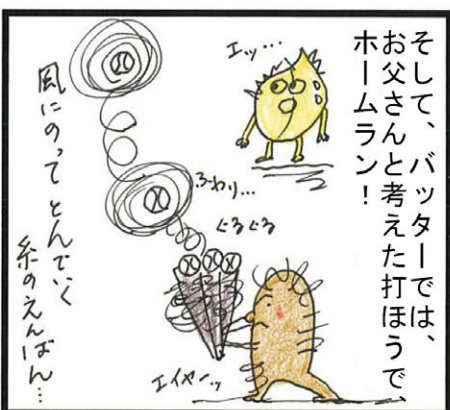 そして、バッターでは、
お父さんと考えた打ほうで、
ホームラン！
エッ…
ふーわり…
ぐるぐる
エイヤーッ
風にのって とんでいく
糸のえんばん…